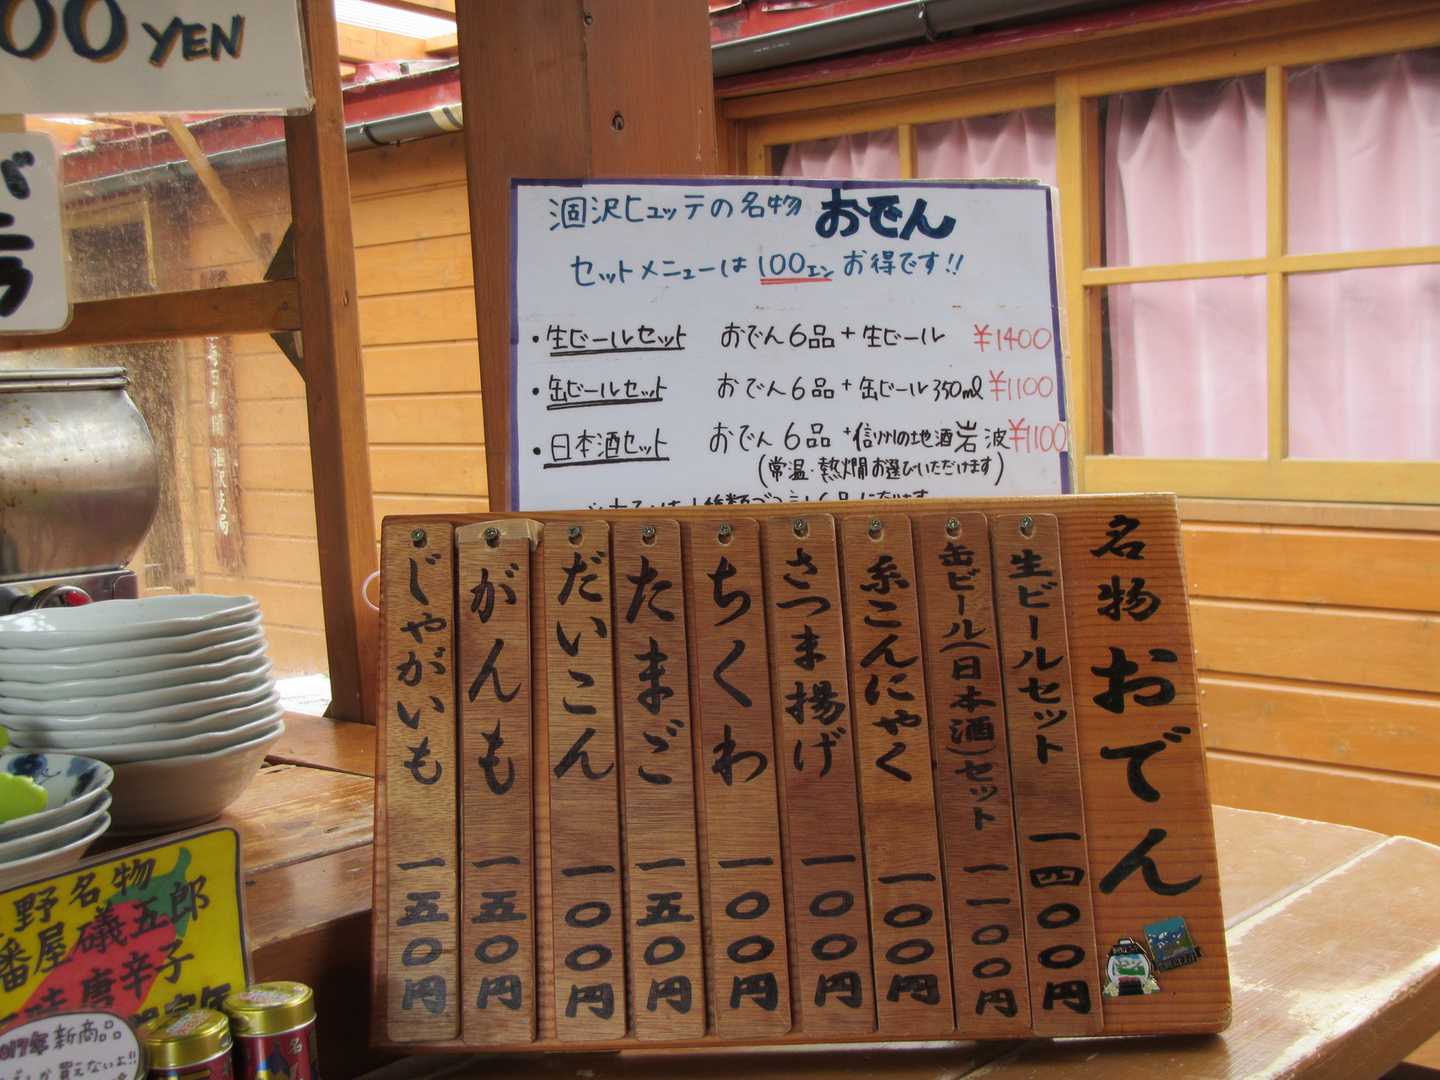 00 YEN
涸沢ヒュッテの名物 おでん
セットメニューは100エンお得です!!
・生ビールセット おでん6品+生ビール ¥1400
・缶ビールセット おでん6品+缶ビール350ml ¥1100
・日本酒セット おでん6品+信州の地酒岩波 ¥1100
(常温・熱燗お選びいただけます)
名物おでん
生ビールセット 一四〇〇円
缶ビール(日本酒)セット 一一〇〇円
糸こんにゃく 一〇〇円
さつま揚げ 一〇〇円
ちくわ 一〇〇円
たまご 一五〇円
だいこん 一〇〇円
がんも 一五〇円
じゃがいも 一五〇円
野名物
番屋礒五郎
唐辛子
2017年新商品
買えないよ!!